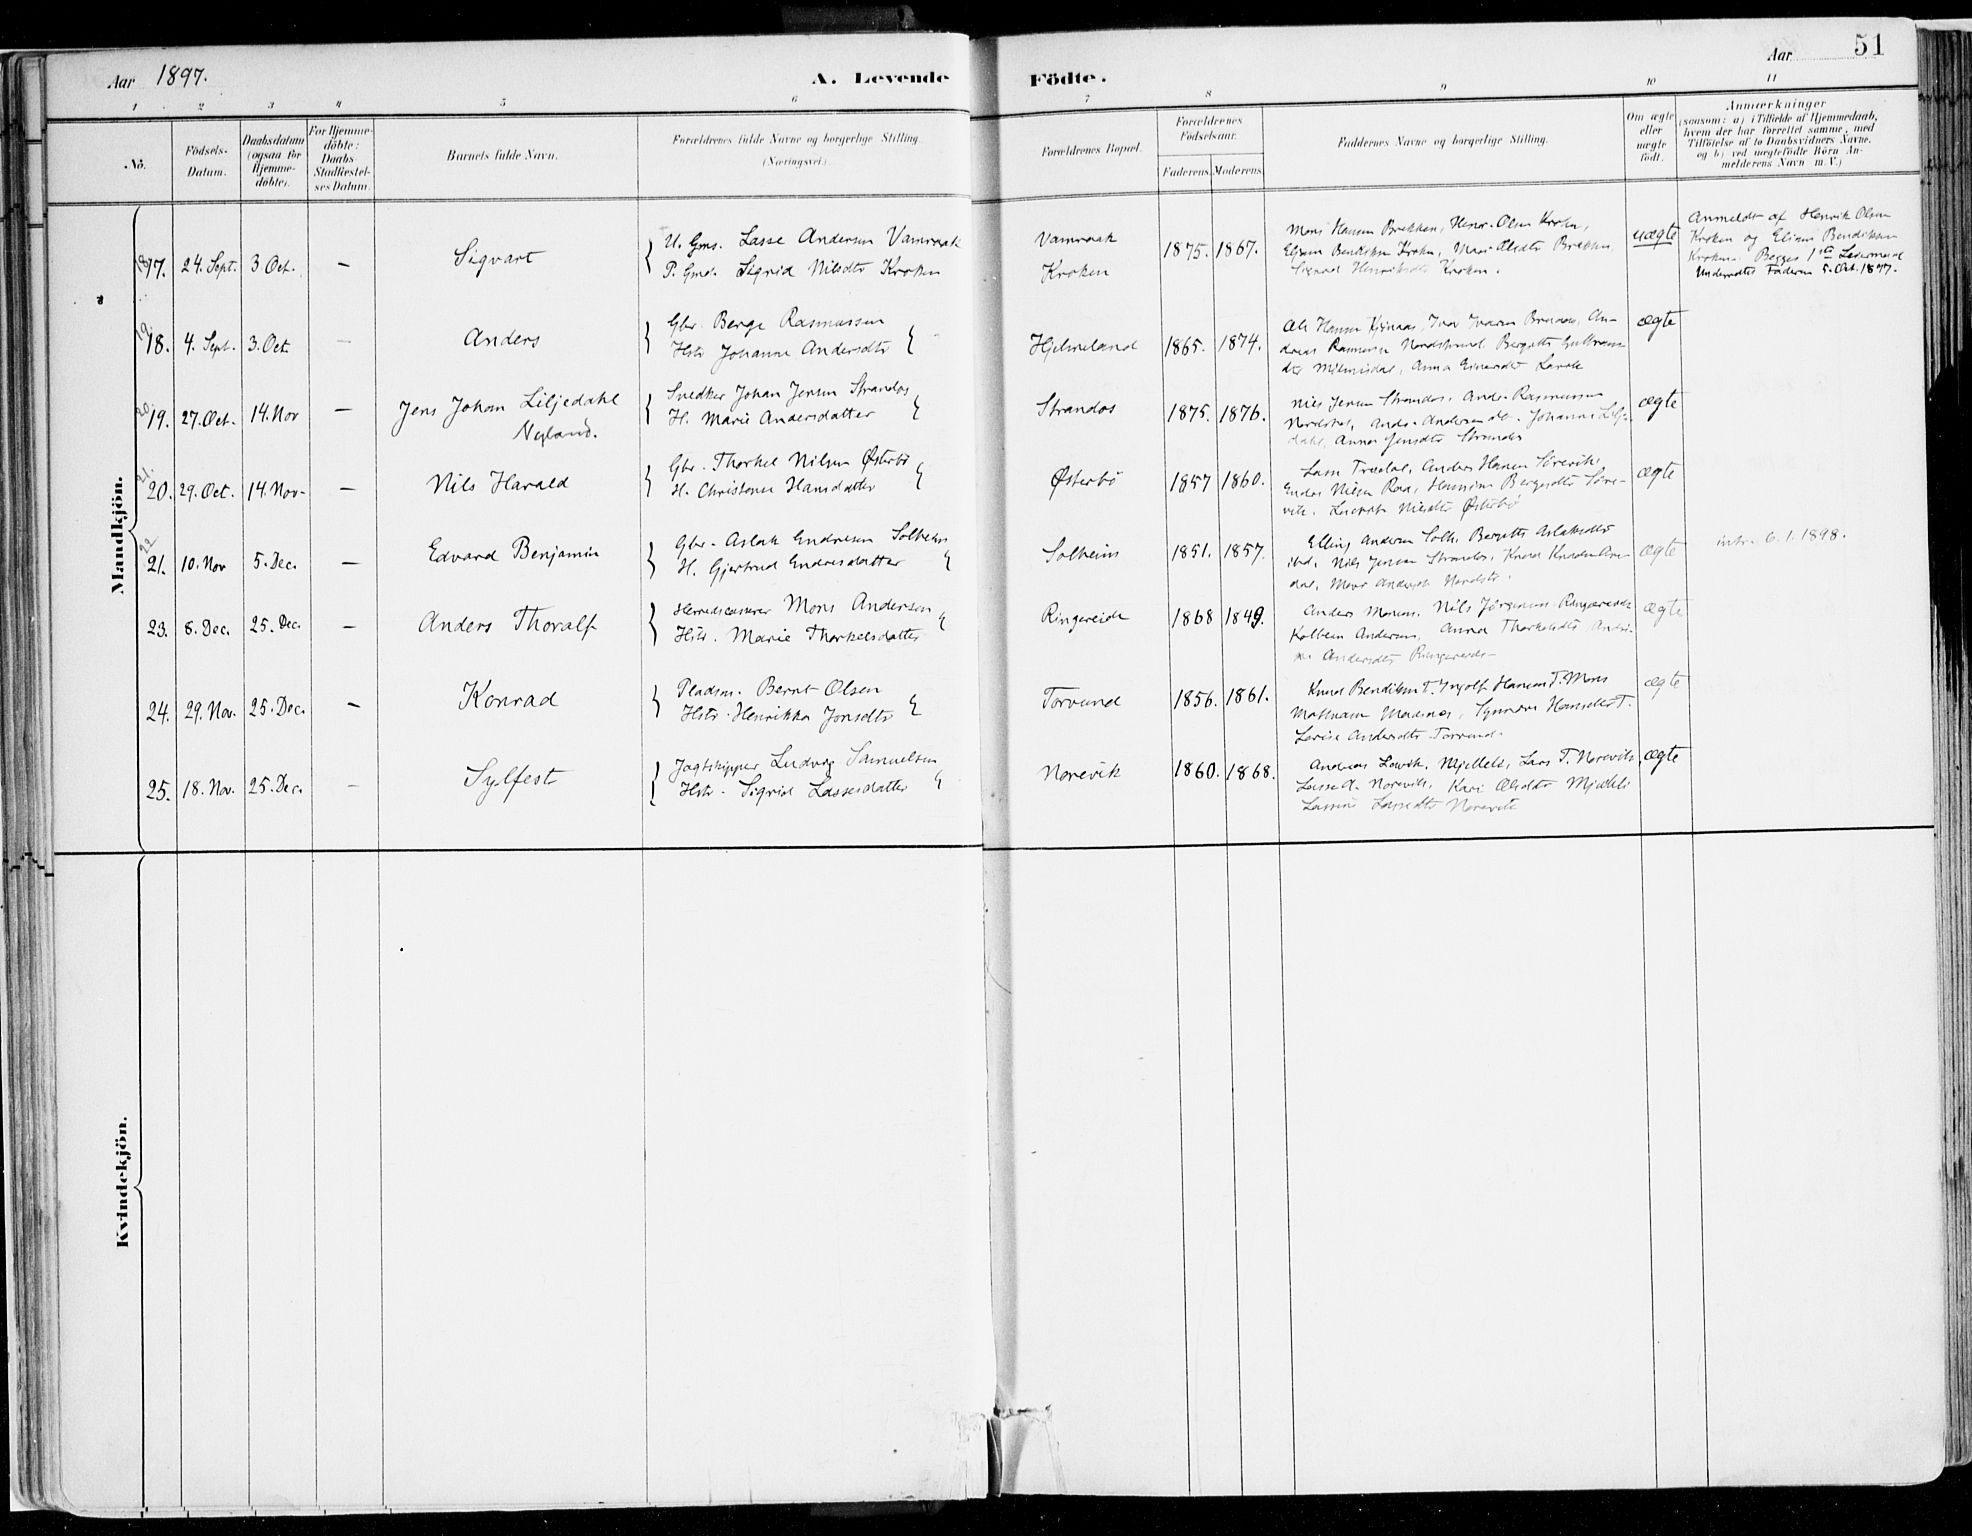 Aar 1897.
A. Levende
Födte.
Aar
51
1 2 3 4 5 6 7 8 9 10 11
No.
Födsels-
Datum.
Daabsdatum
(ogsaa for
Hjemme-
döbte).
For Hjemme-
döbte:
Daabs
Stadfestel-
ses Datum.
Barnets fulde Navn.
Forældrenes fulde Navne og borgerlige Stilling.
(Næringsvei).
Forældrenes Bopæl.
Forældrenes
Födselsaar.
Faderens. Moderens.
Faddernes Navne og borgerlige Stilling.
Om ægte
eller
uægte
födt.
Anmærkninger
(saasom: a) i Tilfælde af Hjemmedaab,
hvem der har forrettet samme, med
Tilföielse af to Daabsvidners Navne,
og b) ved uægtefödte Börn An-
melderens Navn m. V.)
Mandkjön.
18
17. 24. Sept. 3 Oct. — Sigvart
U. Gms. Lasse Andersen Vamraak
P. Gmd. Sigrid Nilsdtr Kroken
Vamraak
Kroken
1875. 1867.
Mons Hansen Brekken, Henr. Olsen Kroken,
Eliseus Bendiksen Kroken, Mari Olsdtr Brekken,
Sigrid Henriksdtr Kroken.
uægte
Anmeldt af Henrik Olsen
Kroken og Eliseus Bendiksen
Kroken. Begges 1ste Leiermaal
Underrettet Faderen 5. Oct. 1897.
19.
18. 4. Sept. 3. Oct. — Anders
Gbr. Berge Rasmussen
Hstr Johanne Andersdtr
Hjelmeland
1865. 1874.
Ole Hansen Ivar Ivarsen An-
dreas Rasmussen Nordstrand, Bergitte
dtr Anna Einarsdtr
ægte
20.
19. 27. Oct. 14. Nov — Jens Johan Liljedahl
Nyland.
Snedker Johan Jensen Strandos
H. Marie Andersdatter
Strandos
1875. 1876.
Nils Jensen Strandos, Anders Rasmussen
Anders Andersen Johanne Lilje-
dahl, Anna Jensdtr Strandos
ægte
21.
20. 29. Oct. 14. Nov. — Nils Harald
Gbr. Thorkel Nilsen Østerbö
H. Christine Hansdatter
Østerbö
1857 1860.
Lasse Anders Hansen Sörevik,
Endre Nilsen Hansine Bergesdtr Söre-
vik. Nilsdtr Østerbö
ægte
22
21. 10. Nov 5. Dec. — Edvard Benjamin
Gbr. Aslak Endresen Solheim
H. Gjertrud Endresdatter
Solheim
1851. 1857.
Elling Andersen Solh. Bergitte Aslaksdtr
ibd, Nils Jensen Strandos, Knud Knudsen
dal, Mari Andersdt
ægte
intr. 6.1.1898.
23. 8. Dec. 25. Dec. — Anders Thoralf
Herredscasserer Mons Andersen
Hstr. Marie Thorkelsdatter
Ringereide
1868 1849.
Anders Monsen, Nils Jörgensen Ringereide
Kolbein Andersen, Anna Thorkelsdtr
Andersdtr Ringereide
ægte
24. 29. Nov. 25. Dec. — Konrad
Pladsm. Bernt Olsen
Hstr. Henrikka Jonsdtr
Torvund
1856. 1861.
Knud Bendiksen T. Ingolf Hansen T. Mons
Mathiasen Synneve Hansdtr T.
Lovise Andersdtr Torvund
ægte
25. 18. Nov. 25. Dec. — Sylfest
Jagtskipper Ludvig Samuelsen
Hstr. Sigrid Lassesdatter
Norevik
1860. 1868.
Andreas Lars T. Norevik,
Lasse A. Norevik, Kari Olsdtr Mjellele
Lassine Lassedtr Norevik
ægte
Kvindekjön.